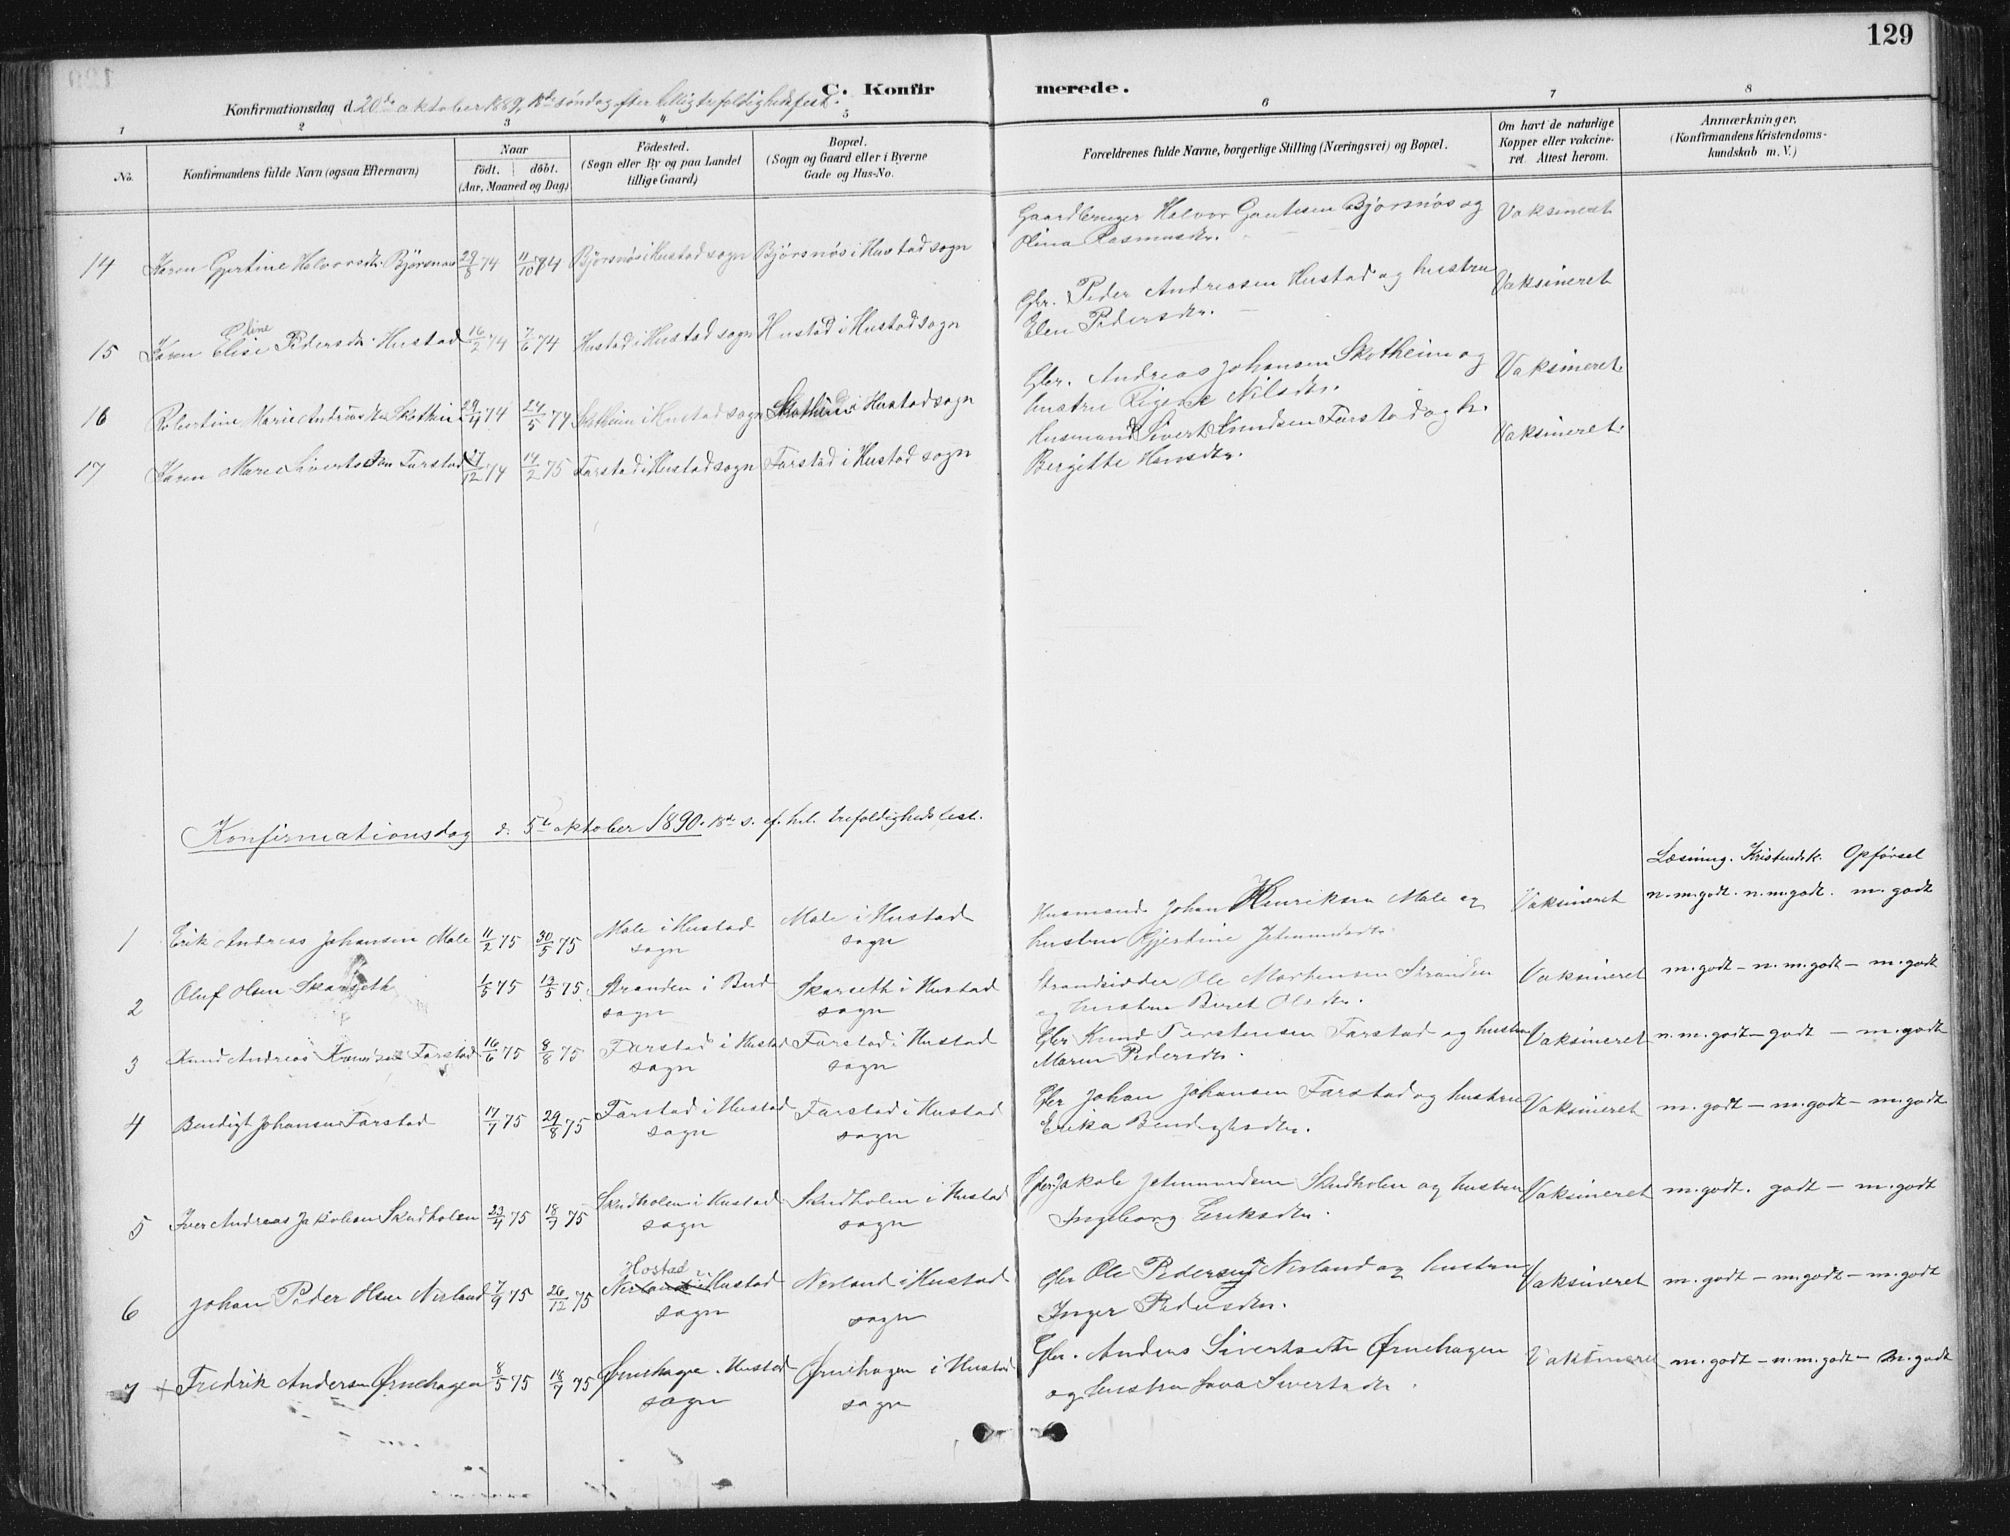 129
C. Konfirmerede.
Konfirmationsdag d. 20de oktober 1889, 18de søndag efter hellig trefoldighedsfest.
1 2 3 4 5 6 7 8
No. Konfirmandens fulde Navn (ogsaa Efternavn) Naar født. døbt. (Aar, Maaned og Dag) Fødested. (Sogn eller By og paa Landet tillige Gaard) Bopæl. (Sogn og Gaard eller i Byerne Gade og Hus-No. Forældrenes fulde Navne, borgerlige Stilling (Næringsvei) og Bopæl. Om havt de naturlige Kopper eller vakcineret. Attest herom. Anmærkninger. (Konfirmandens Kristendomskundskab m. V.)
14 Karen Gjertine Halvorsdtr. Bjørsnøs 29/8 74 11/10 74 Bjørsnøs i Hustad sogn Bjørsnøs i Hustad sogn Gaardbruger Halvor Gautesen Bjørsnøs og Olina Rasmusdtr. Vaksineret
15 Karen Elise line Pedersdtr. Hustad 16/2 74 7/6 74 Hustad i Hustad sogn Hustad i Hustad sogn Gbr. Peder Andreasen Hustad og hustru Elen Pedersdtr. Vaksineret
16 Robertine Marie Andreasdtr. 29/4 74 24/5 74 i Hustad sogn i Hustad sogn Gbr. Andreas Johansen Skotheim og hustru Nilsdtr. Vaksineret
17 Karen Marie Sivertsdtr. Farstad 17/12 74 14/2 75 Farstad i Hustad sogn Farstad i Hustad sogn Husmand Sivert Knudsen Farstad og h. Bergitte Hansdtr. Vaksineret
Konfirmationsdag d. 5te oktober 1890. 18de s. ef. hel. trefoldighedsfest.
Læsning. Kristendsk. Opførsel
1 Erik Andreas Johansen Male 11/2 75 30/5 75 Male i Hustad sogn Male i Hustad sogn Husmand Johan Henriksen Male og hustru Gjertine Vaksineret n.m.godt. n.m.godt. m. godt
2 Oluf Olsen Skarseth 1/5 75 13/5 75. Stranden i Bud sogn Skarseth i Hustad sogn Strandsidder Ole Mortensen Stranden og hustru Beret Olsdtr. Vaksineret m.godt - n.m.godt - m.godt
3 Knud Andreas Knudsen Farstad 16/6 75 8/8 75 Farstad i Hustad sogn Farstad i Hustad sogn Gbr Knud Torstensen Farstad og hustru Maren Pedersdtr. Vaksineret n.m.godt - godt - m.godt
4 Bendigt Johansen Farstad 17/7 75 29/8 75 Farstad i Hustad sogn Farstad i Hustad sogn Gbr Johan Johansen Farstad og hustru Erika Bendigtsdtr. Vaksineret m.godt - m.godt - m.godt
5 Iver Andreas Jakobsen Skudholen 23/4 75 18/7 75 Skudholen i Hustad sogn Skudholen i Hustad sogn Gbr. Jakob Skudholen og hustru Ingeborg Eriksdtr. Vaksineret m.godt. godt - m.godt
6 Johan Peder Olsen Nerland 7/9 75 26/12 75 Hostad i Nerland i Hustad sogn Nerland i Hustad sogn Gbr Ole Pedersen Nerland og hustru Inger Pedersdtr. Vaksineret m.godt - m.godt - m.godt
7 + Fredrik Andersen Ørnehagen 8/5 75 18/7 75 Ørnehagen i Hustad sogn Ørnehagen i Hustad sogn Gbr. Anders Sivertsen Ørnehagen og hustru Sivertsdtr. Vaksineret m.godt - n.m.godt - m.godt